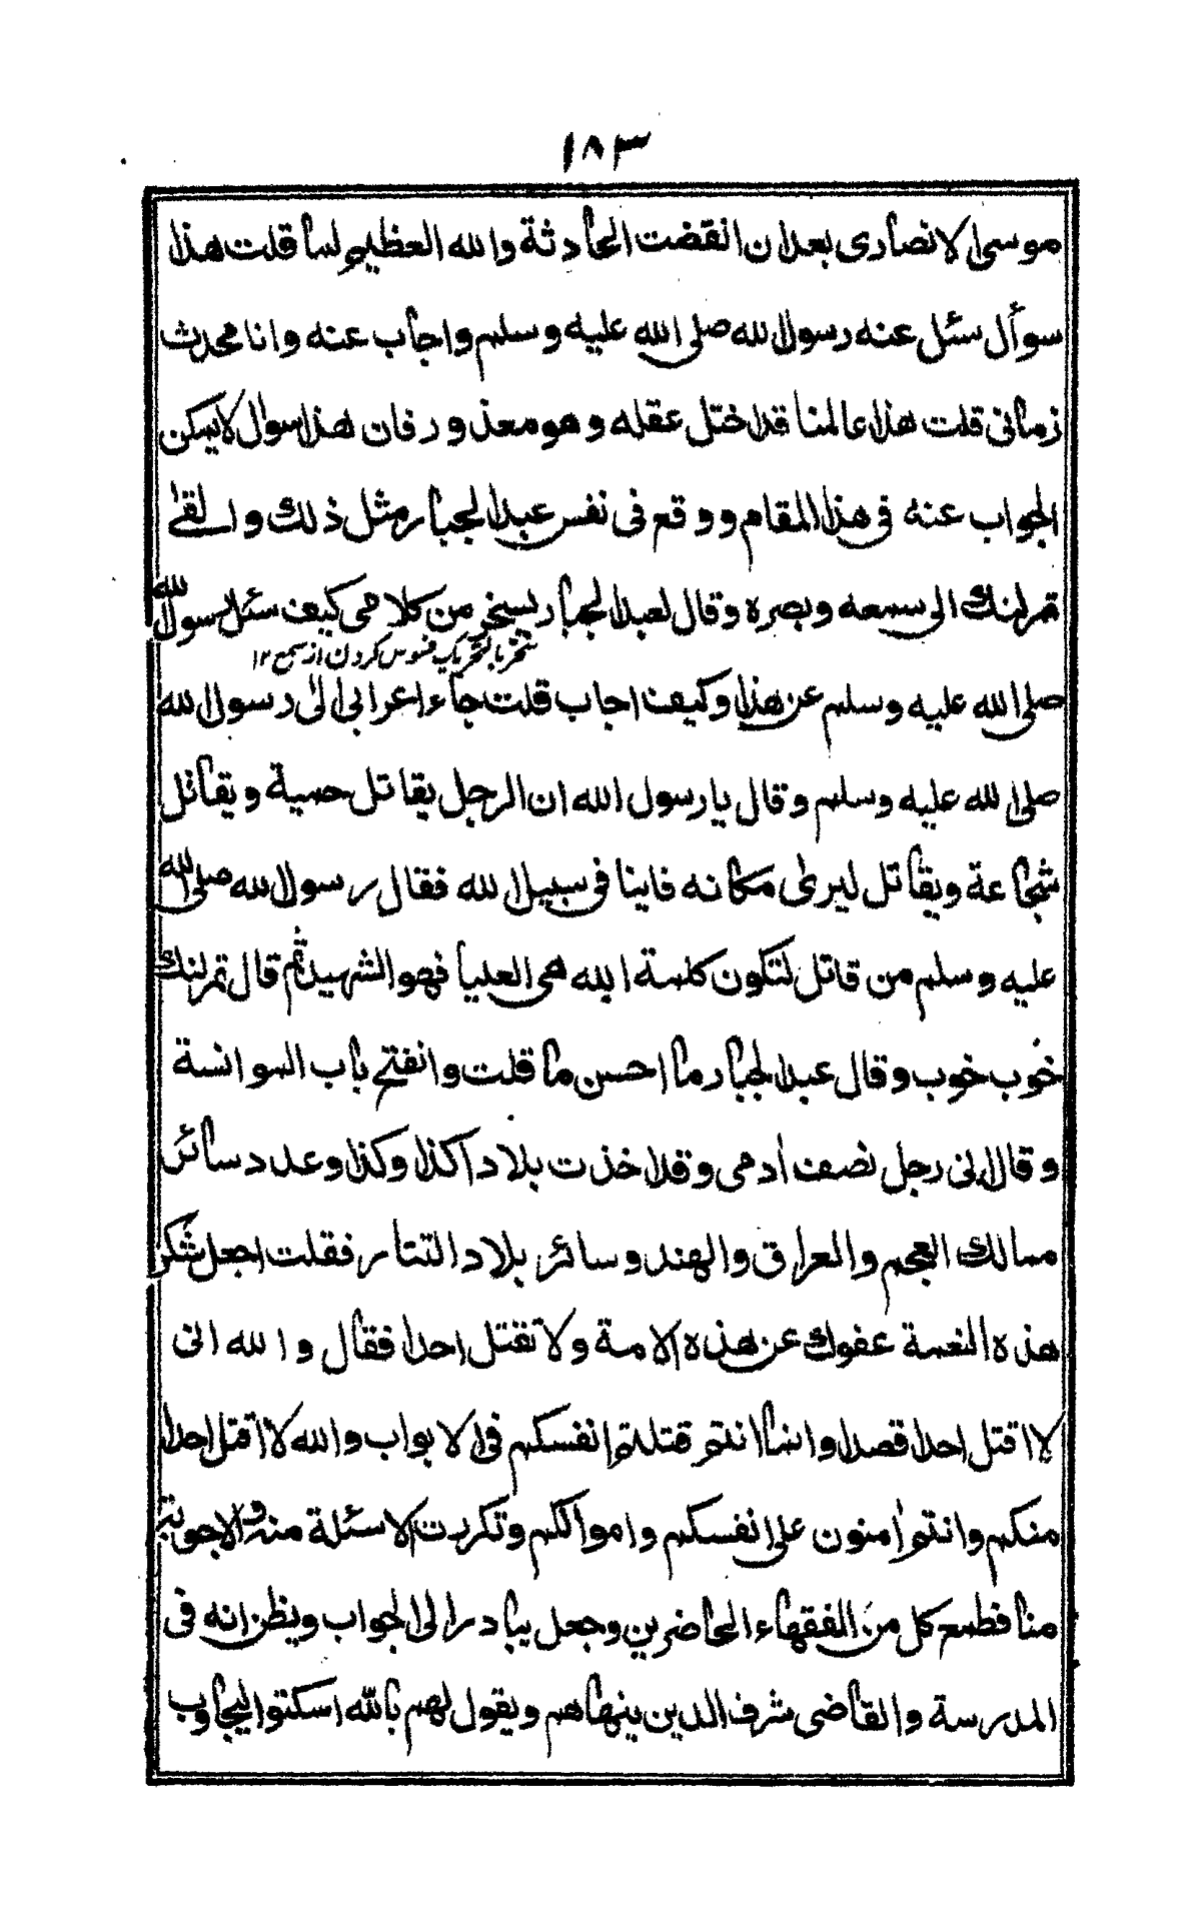 ١٨٣
موسى الانصارى بعد ان انقضت الحادثة والله العظيم لما قلت هذا
سوأل سئل عنه رسول الله صلى الله عليه وسلم واجاب عنه وانا محدث
زمانى قلت هذا عالمنا قد اختل عقله وهو معذور فان هذا سوال لا يمكن
الجواب عنه فى هذا المقام ووقع فى نفس عبد الجبار مثل ذلك والقى
تمرلنك الى سمعه وبصره وقال لعبد الجبار يسخر من كلامى كيف سئل رسول الله
تسخر بالتحريك فسوس كردن از سمع ١٢
صلى الله عليه وسلم عن هذا وكيف اجاب قلت جاء اعرابى الى رسول الله
صلى الله عليه وسلم وقال يا رسول الله ان الرجل يقاتل حمية ويقاتل
شجاعة ويقاتل ليرى مكانه فاينا فى سبيل الله فقال رسول الله صلى الله
عليه وسلم من قاتل لتكون كلمة الله هى العليا فهو الشهيد ثم قال تمرلنك
خوب خوب وقال عبد الجبار ما احسن ما قلت وانفتح باب الموانسة
وقال انى رجل نصف ادمى وقد اخذت بلادا كذا وكذا وعدد سائر
ممالك العجم والعراق والهند وسائر بلاد التتار فقلت اجعل شكر
هذه النعمة عفوك عن هذه الامة ولا تقتل احدا فقال والله انى
لا اقتل احدا قصدا وانما انتم قتلتم انفسكم فى الابواب والله لا اقتل احدا
منكم وانتم امنون على انفسكم واموالكم وتكررت الاسئلة منه والاجوبة
منا فطمع كل من الفقهاء الحاضرين وجعل يبادر الى الجواب ويظن انه فى
المدرسة والقاضى شرف الدين ينهاهم ويقول لهم بالله اسكتوا ليجاوب